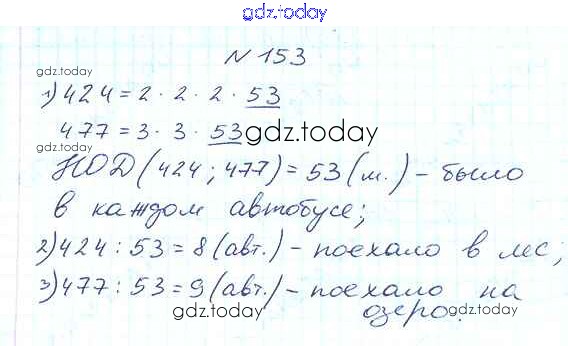 gdz.today
N 153
gdz.today
1) 424 = 2 · 2 · 2 · 53
477 = 3 · 3 · 53 gdz.today
НОД (424 ; 477) = 53 (м.) - было
в каждом автобусе;
gdz.today
gdz.today
2) 424 : 53 = 8 (авт.) - поехало в лес;
3) 477 : 53 = 9 (авт.) - поехало на
озеро.
gdz.today
gdz.today